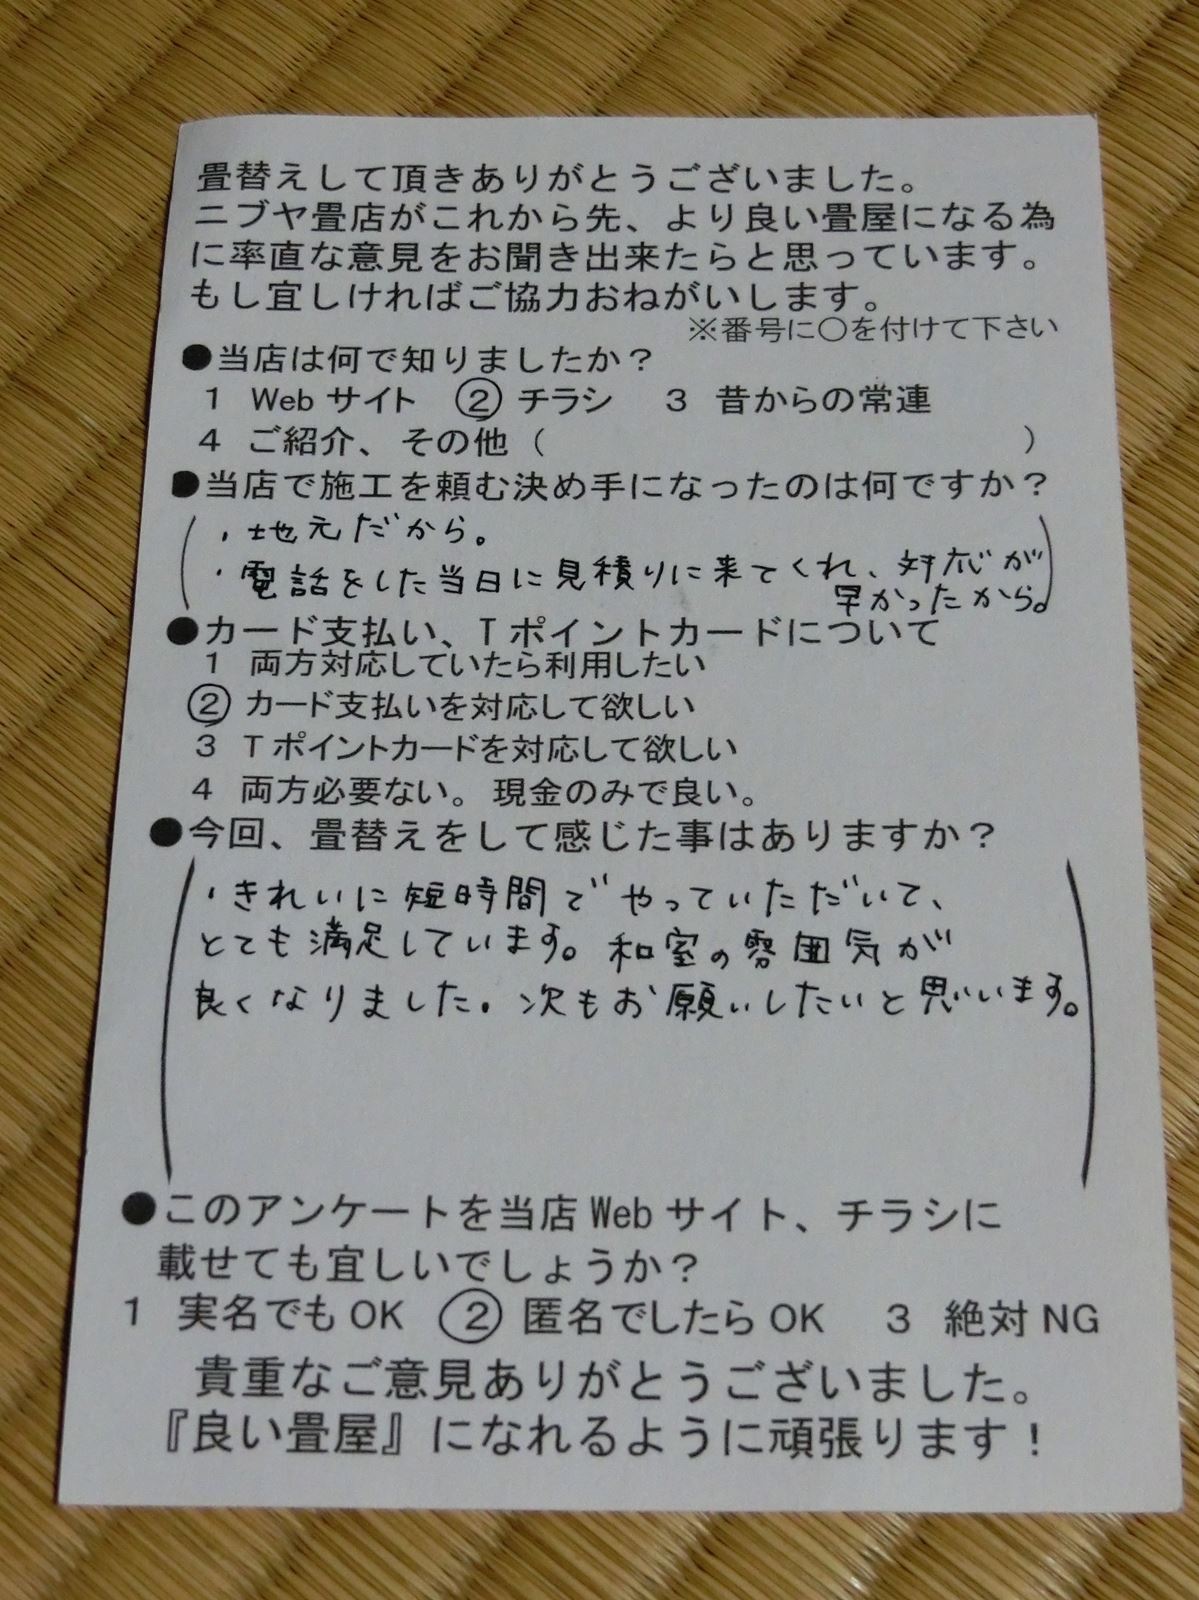 畳替えして頂きありがとうございました。
ニブヤ畳店がこれから先、より良い畳屋になる為
に率直な意見をお聞き出来たらと思っています。
もし宜しければご協力おねがいします。
※番号に〇を付けて下さい
●当店は何で知りましたか？
1 Webサイト ② チラシ 3 昔からの常連
4 ご紹介、その他（ ）
●当店で施工を頼む決め手になったのは何ですか？
・地元だから。
・電話をした当日に見積りに来てくれ、対応が
早かったから。
●カード支払い、Tポイントカードについて
1 両方対応していたら利用したい
② カード支払いを対応して欲しい
3 Tポイントカードを対応して欲しい
4 両方必要ない。現金のみで良い。
●今回、畳替えをして感じた事はありますか？
・きれいに短時間でやっていただいて、
とても満足しています。和室の雰囲気が
良くなりました。次もお願いしたいと思います。
●このアンケートを当店Webサイト、チラシに
載せても宜しいでしょうか？
1 実名でもOK ② 匿名でしたらOK 3 絶対NG
貴重なご意見ありがとうございました。
『良い畳屋』になれるように頑張ります！